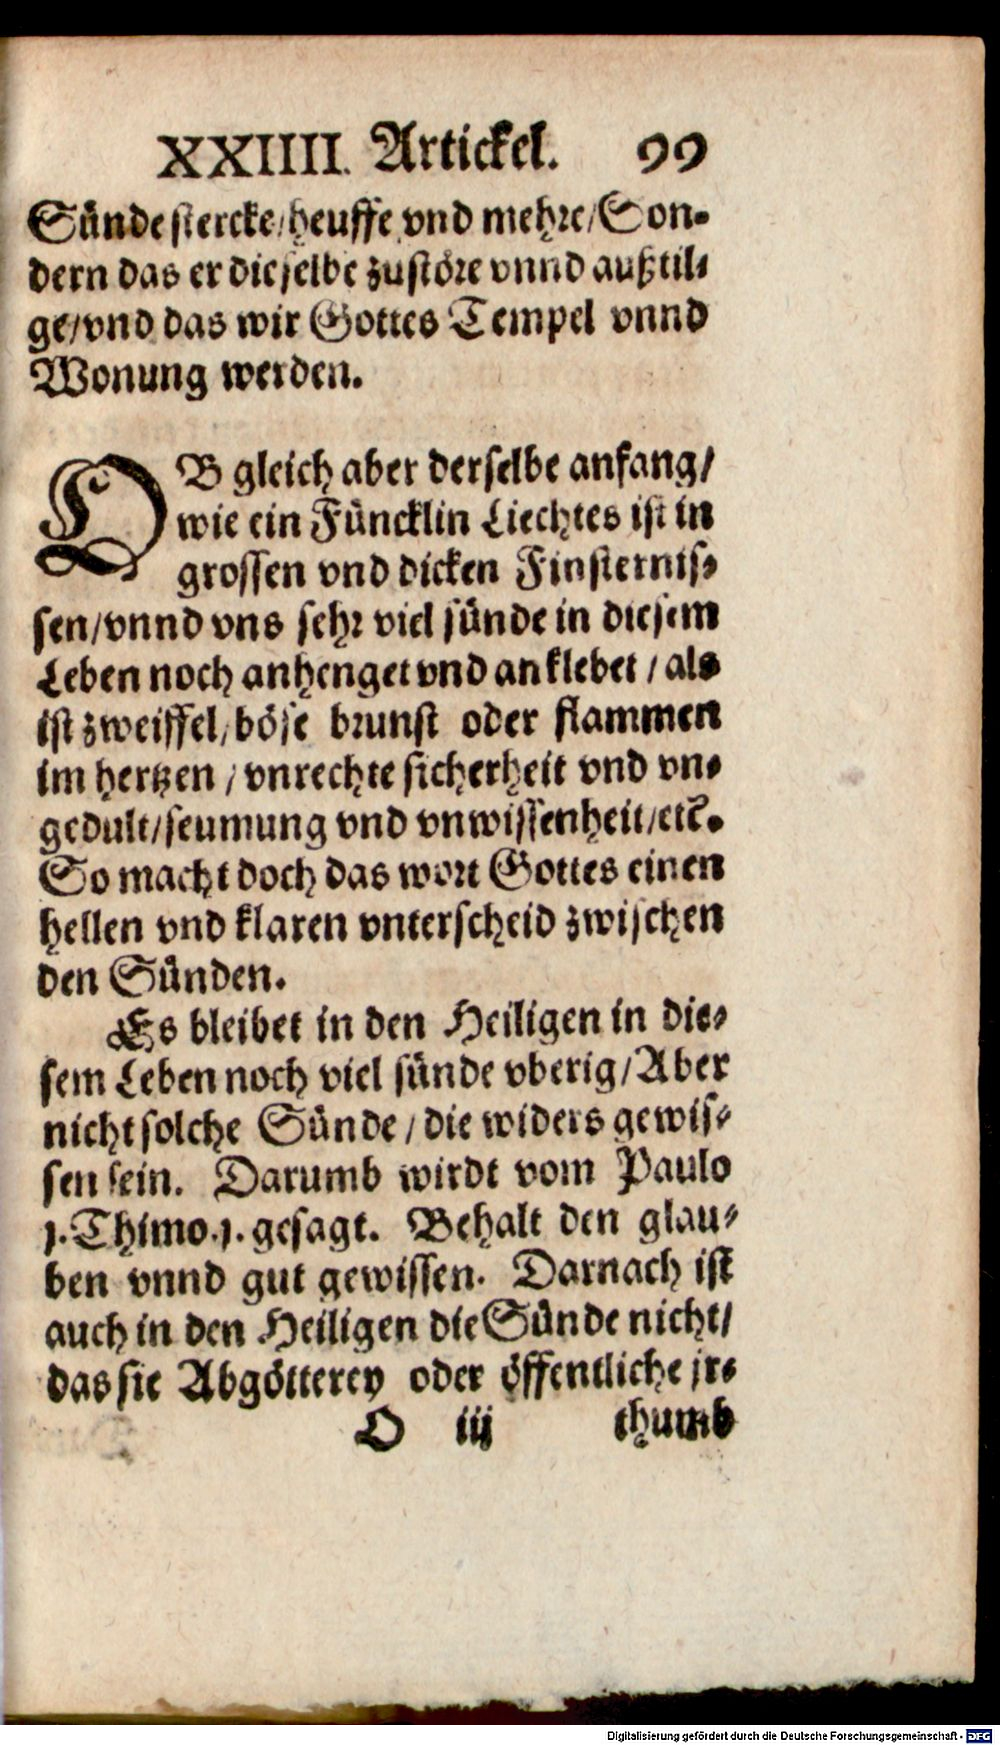 XXIIII. Artickel. 99
Sünde stercke/heuffe vnd mehre/Son-
dern das er dieselbe zustöre vnnd außtil-
ge/vnd das wir Gottes Tempel vnnd
Wonung werden.
OB gleich aber derselbe anfang/
wie ein Füncklin Liechtes ist in
grossen vnd dicken Finsternis-
sen/vnnd vns sehr viel sünde in diesem
Leben noch anhenget vnd anklebet / als
ist zweiffel/böse brunst oder flammen
im hertzen / vnrechte sicherheit vnd vn-
gedult/seumung vnd vnwissenheit/etc.
So macht doch das wort Gottes einen
hellen vnd klaren vnterscheid zwischen
den Sünden.
Es bleibet in den Heiligen in die-
sem Leben noch viel sünde vberig/Aber
nicht solche Sünde/die widers gewis-
sen sein. Darumb wirdt vom Paulo
1.Thimo.1.gesagt. Behalt den glau-
ben vnnd gut gewissen. Darnach ist
auch in den Heiligen die Sünde nicht/
das sie Abgötterey oder öffentliche jr-
O iij thumb
Digitalisierung gefördert durch die Deutsche Forschungsgemeinschaft - DFG